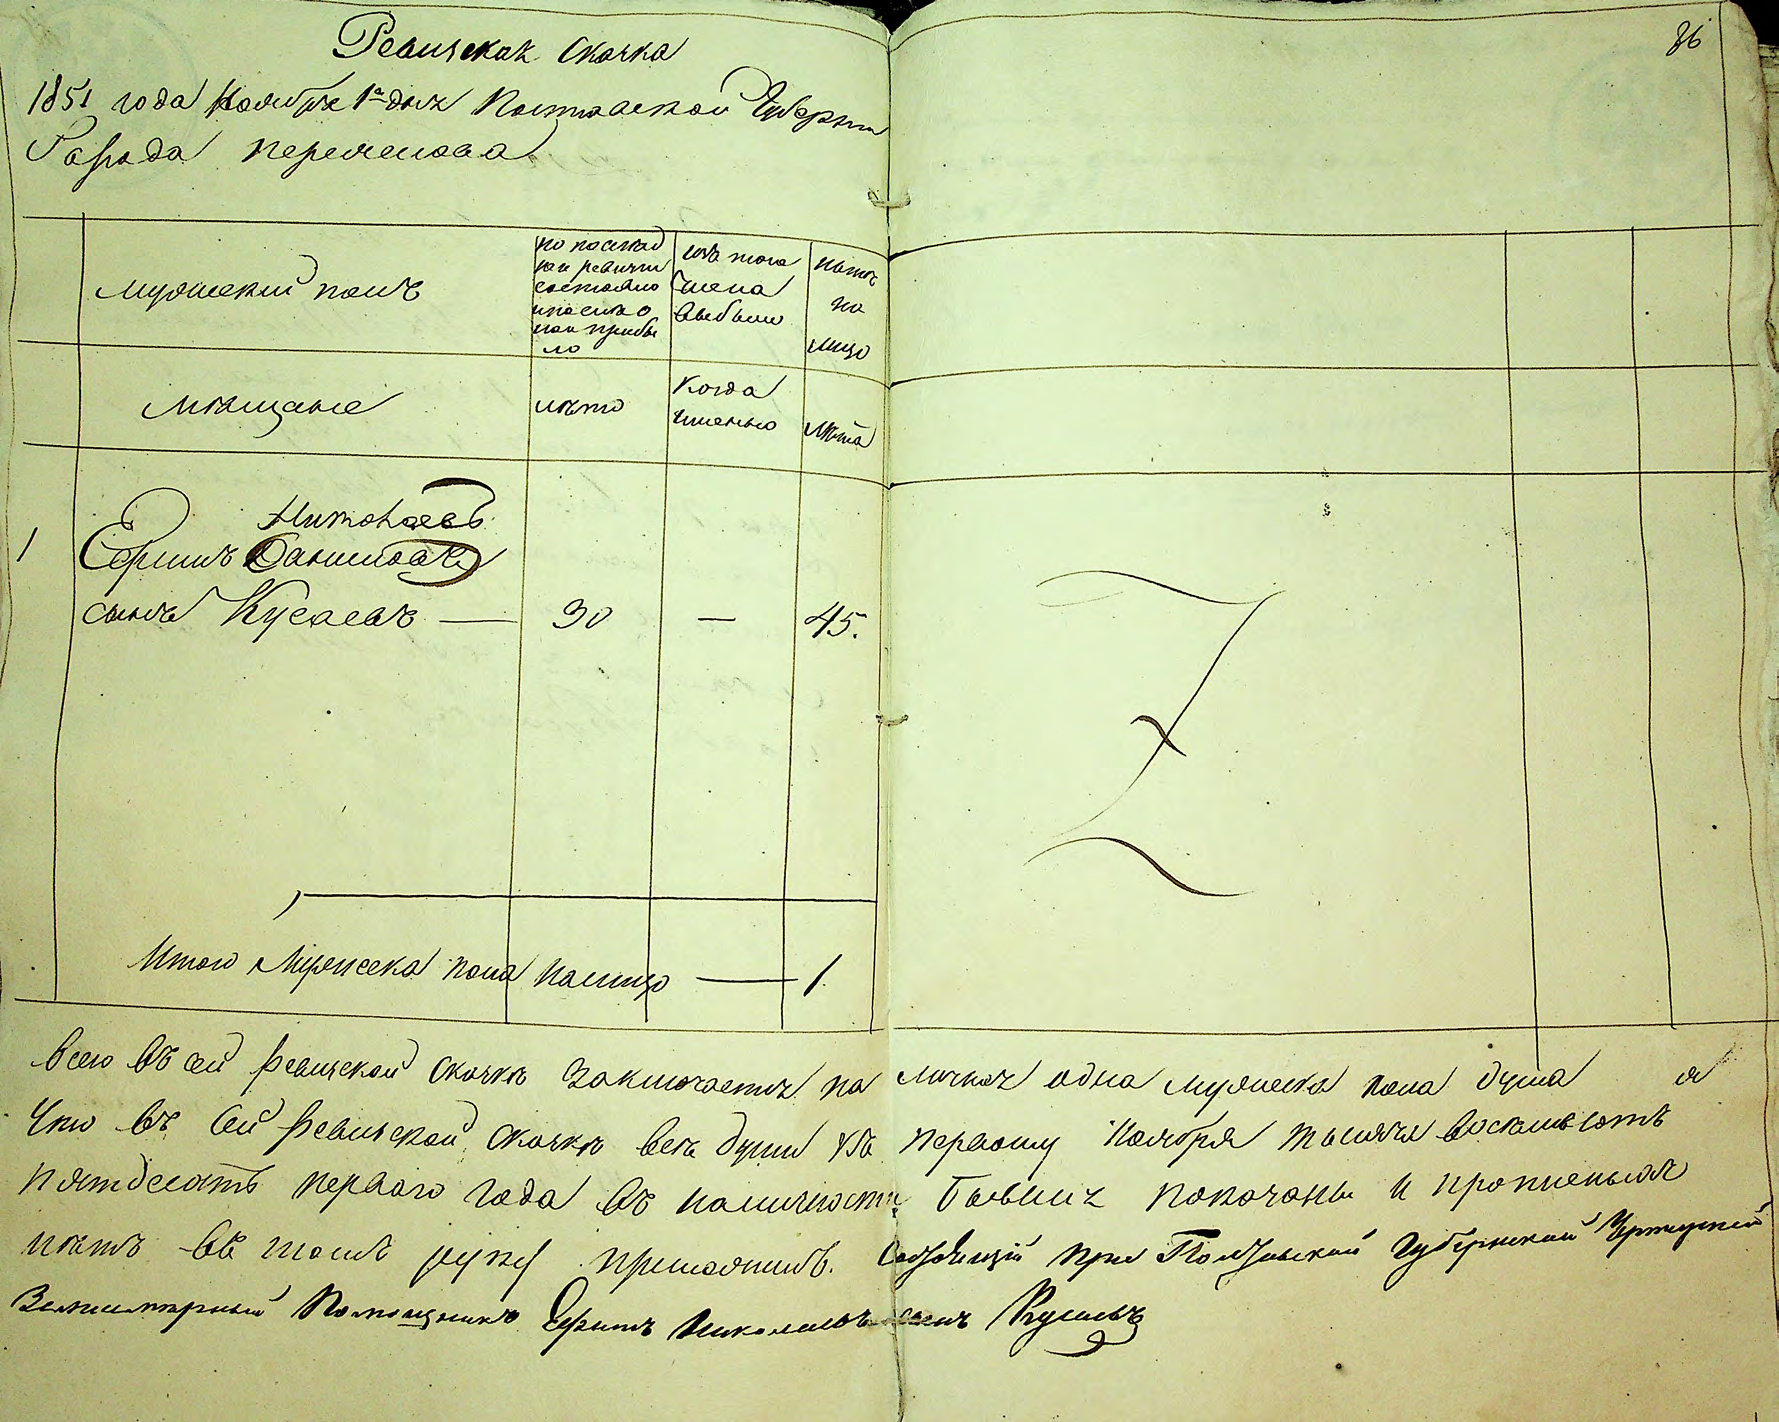 86
Ревизская Скаска
1851 года Ноября 1го дня Полтавской Губерни
Города переяслова
мужеский полъ
по послед
ней ревизiи
состояло
и после о
ной прибы
ло
изъ того
числа
выбыло
ныне
на
лицо
мещане
лета
когда
именно
лета
Николаевъ
1 Ефимъ Даниловъ
сынъ Кусаевъ — 30 — 45.
Итого Мужеска пола налицо — 1
всего въ сей ревизской скаске заключается на личная одна мужеска пола душа а
Что въ Сей Ревизской Скаске все души къ первому Ноября тысяча восемьсотъ
пятдесятъ первого года въ наличности бывшия показаны и прописныхъ
нетъ въ томъ руку приложилъ. Состоящiй при Полтавской Губернской Чертежной
Землемерный Помощникъ Ефимъ Николаевъ сынъ